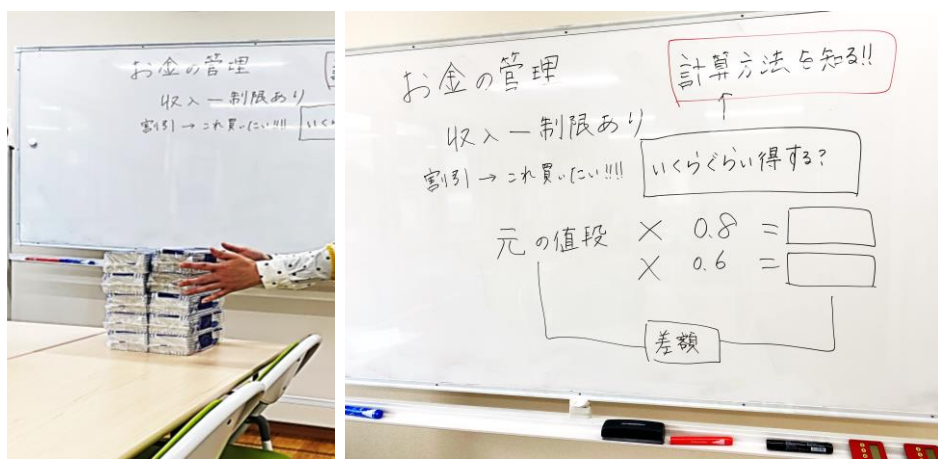 お金の管理
収入ー制限あり
割引→これ買いたい!!!
いく
お金の管理
計算方法を知る!!
↑
収入ー制限あり
割引→これ買いたい!!!!
いくらぐらい得する?
元の値段 × 0.8 =
× 0.6 =
差額